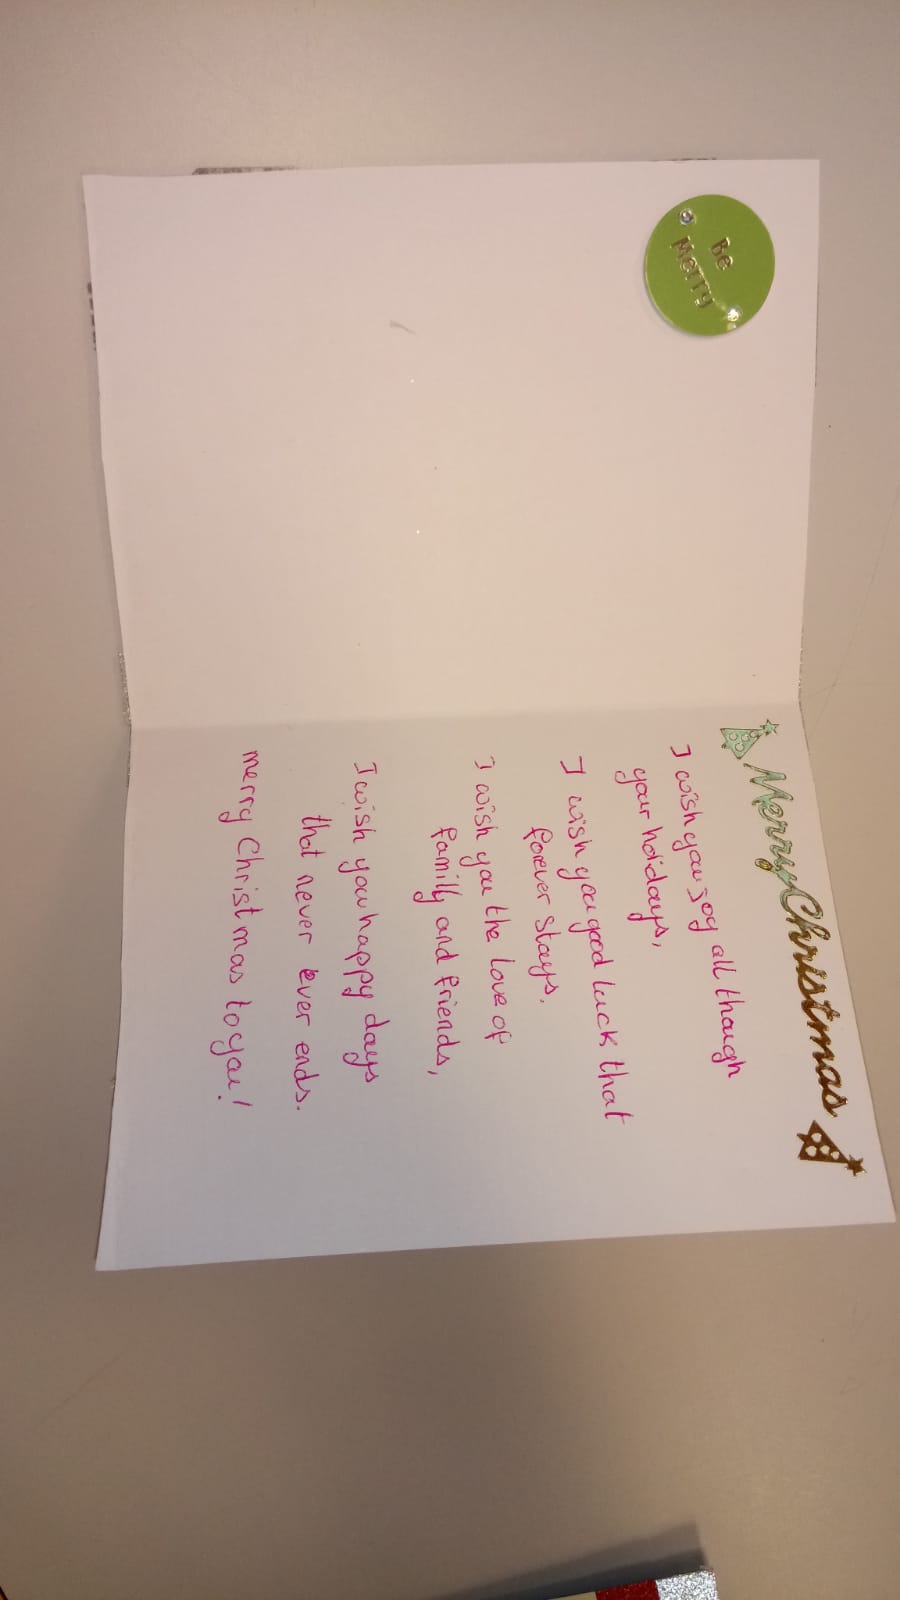 Be
Merry
Merry Christmas
I wish you joy all though
your holidays,
I wish you good luck that
forever stays.
I wish you the love of
family and friends,
I wish you happy days
that never ever ends.
merry Christmas to you!